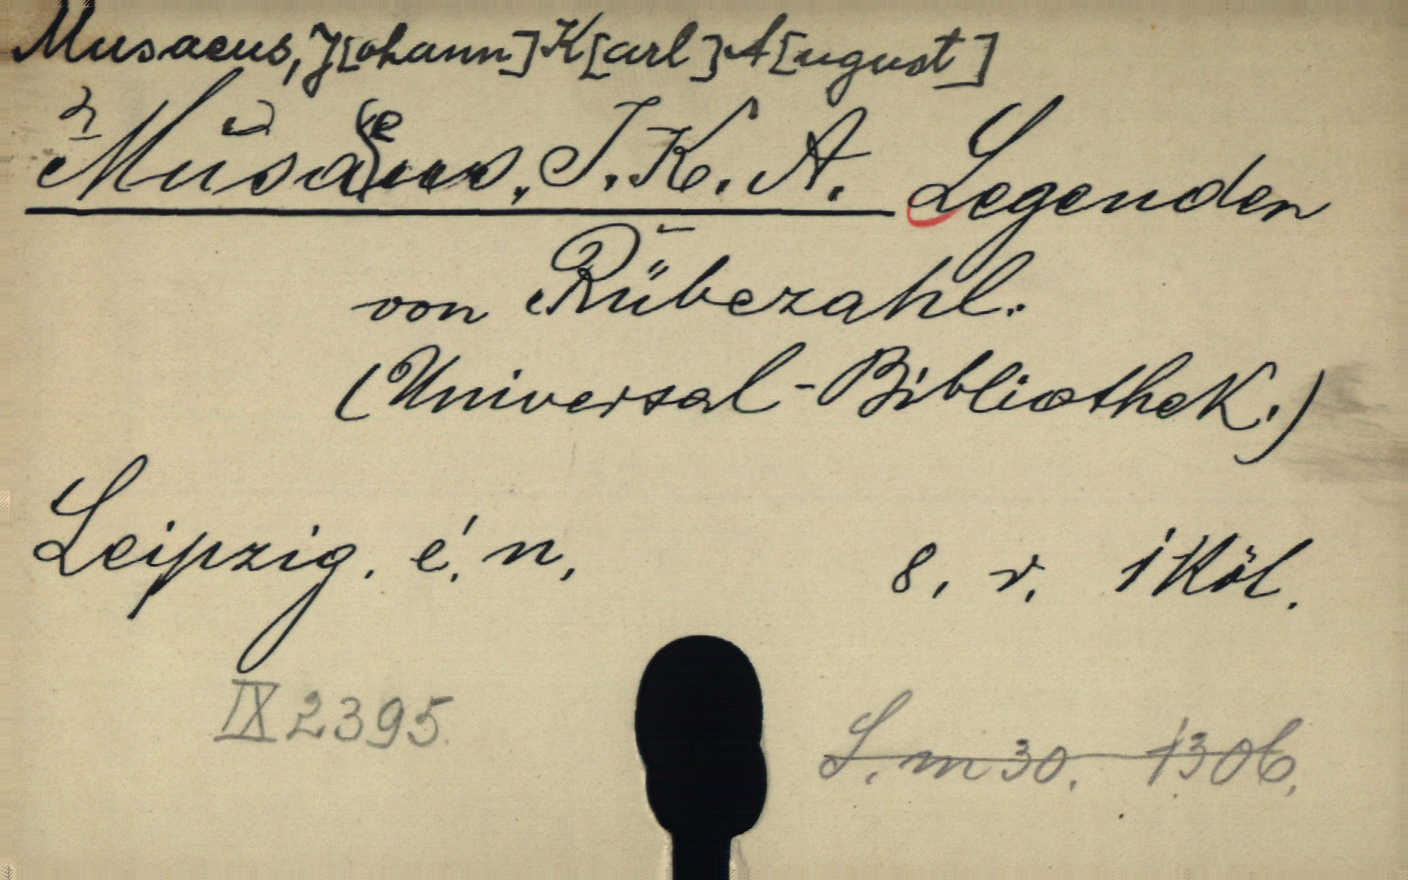 Musaeus, J[ohann] K[arl] A[ugust]
Musaeus, J. K. A. Legenden
von Rübezahl.
(Universal-Bibliothek.)
Leipzig. é. n. 8. r. 1 Köt.
IX 2395.
L. m 30. 1306.